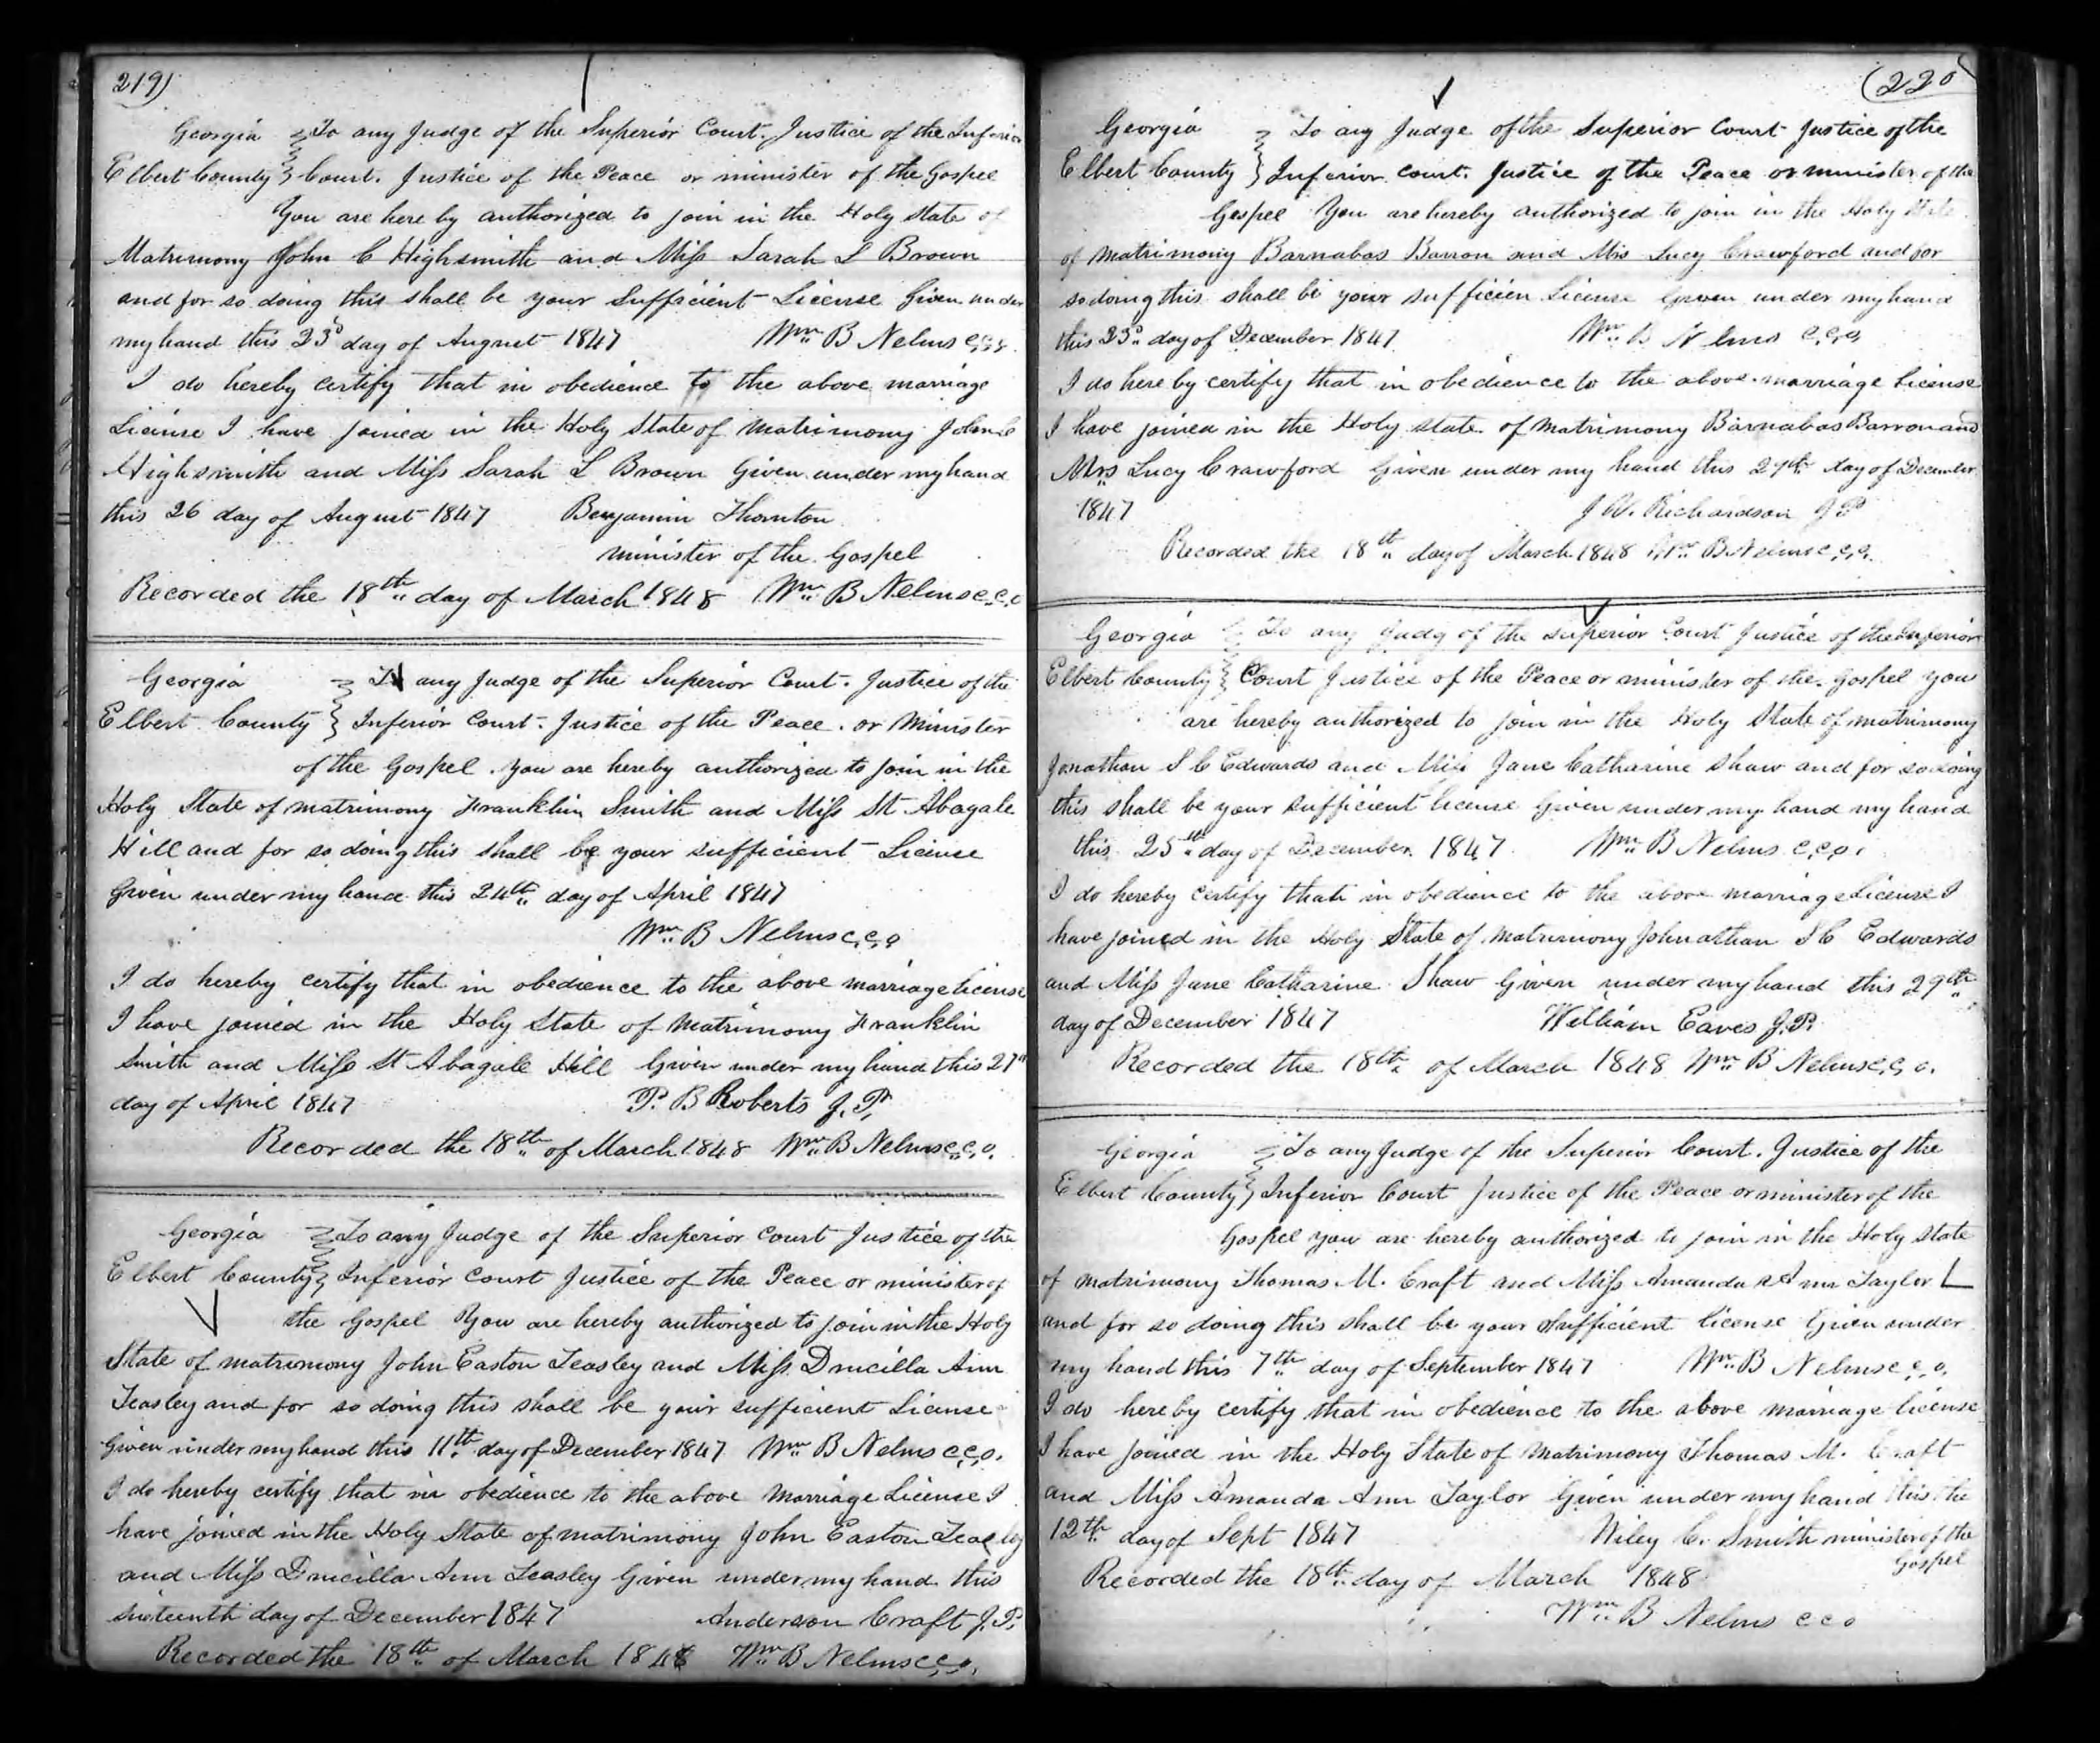 219)
Georgia To any Judge of the Superior Court. Justice of the Inferior
Elbert County Court. Justice of the Peace or minister of the Gospel
You are here by authorized to join in the Holy State of
Matrimony John C Highsmith and Miss Sarah L Brown
and for so doing this shall be your Sufficient License Given under
my hand this 23d day of August 1847 Wm B Nelms c,c,o.
I do hereby certify that in obedience to the above marriage
License I have joined in the Holy State of Matrimony John C
Highsmith and Miss Sarah L Brown Given under my hand
this 26 day of August 1847 Benjamin Thornton
minister of the Gospel
Recorded the 18th day of March 1848 Wm B Nelms c,c,o
Georgia To any Judge of the Superior Court. Justice of the
Elbert County Inferior Court. Justice of the Peace. or Minister
of the Gospel. You are hereby authorized to join in the
Holy State of matrimony Franklin Smith and Miss St Abagale
Hill and for so doing this shall be your sufficient License
Given under my hand this 24th day of April 1847
Wm B Nelms c,c,o
I do hereby certify that in obedience to the above marriage license
I have joined in the Holy State of Matrimony Franklin
Smith and Miss St Abagale Hill Given under my hand this
day of April 1847 P. B Roberts J. P.
Recorded the 18th of March 1848 Wm B Nelms c,c,o.
Georgia To any Judge of the Superior Court Justice of the
Elbert County Inferior Court Justice of the Peace or minister of
the Gospel You are hereby authorized to join in the Holy
State of matrimony John Easton Teasley and Miss Drucilla Ann
Teasley and for so doing this shall be your sufficient License
Given under my hand this 11th day of December 1847 Wm B Nelms c,c,o.
I do hereby certify that in obedience to the above Marriage License I
have joined in the Holy State of matrimony John Easton Teasley
and Miss Drucilla Ann Teasley Given under my hand this
sixteenth day of December 1847 Anderson Craft J. P.
Recorded the 18th of March 1848 Wm B Nelms c,c,o.
(220
Georgia To any Judge of the Superior Court Justice of the
Elbert County Inferior Court. Justice of the Peace or minister of the
Gospel You are hereby authorized to join in the Holy State
of Matrimony Barnabas Barron and Mrs Lucy Crawford and for
so doing this shall be your sufficien License Given under my hand
this 23d day of December 1847 Wm B Nelms c,c,o,
I do here by certify that in obedience to the above marriage License
I have joined in the Holy State of Matrimony Barnabas Barron and
Mrs Lucy Crawford Given under my hand this day of December
1847 J W. Richardson J P
Recorded the 18th day of March 1848 Wm B Nelms c,c,o.
Georgia To any Judg of the Superior Court Justice of the Inferior
Elbert County Court Justice of the Peace or minister of the Gospel you
are hereby authorized to join in the Holy State of matrimony
Jonathan S C Edwards and Miss Jane Catharine Shaw and for so doing
this shall be your sufficient license Given under my hand my hand
this 25th day of December 1847 Wm B Nelms c,c,o,
I do hereby certify that in obedience to the above marriage License I
have joined in the Holy State of Matrimony Johnathan S C Edwards
and Miss Jane Catharine Shaw Given under my hand this 29th
day of December 1847 William Eaves J. P.
Recorded the 18th of March 1848 Wm B Nelms c,c, o.
Georgia To any Judge of the Superior Court. Justice of the
Elbert County Inferior Court Justice of the Peace or minister of the
Gospel you are hereby authorized to join in the Holy State
of Matrimony Thomas M. Craft and Miss Amanda Ann Taylor
and for so doing this shall be your Sufficient license Given under
my hand this 7th day of September 1847 Wm B Nelms c,c,o,
I do hereby certify that in obedience to the above marriage license
I have joined in the Holy State of Matrimony Thomas M. Craft
and Miss Amanda Ann Taylor Given under my hand this the
12th day of Sept 1847 Wiley C. Smith minister of the
Gospel
Recorded the 18th day of March 1848
Wm B Nelms c c o